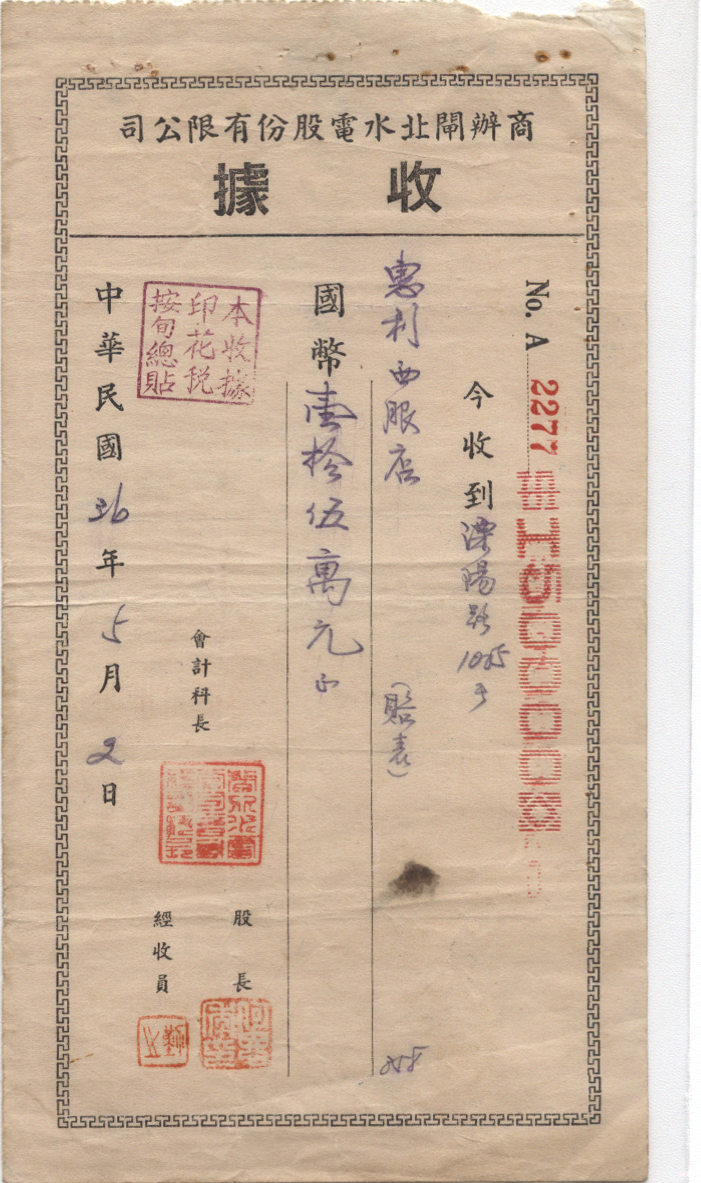 商辦閘北水電股份有限公司
收據
No. A 2277
今收到溧陽路1025号
惠利西服店(賠表)
國幣壹拾伍萬元正
本收據
印花稅
按旬總貼
會計科長
股長
經收員
中華民國36年5月2日